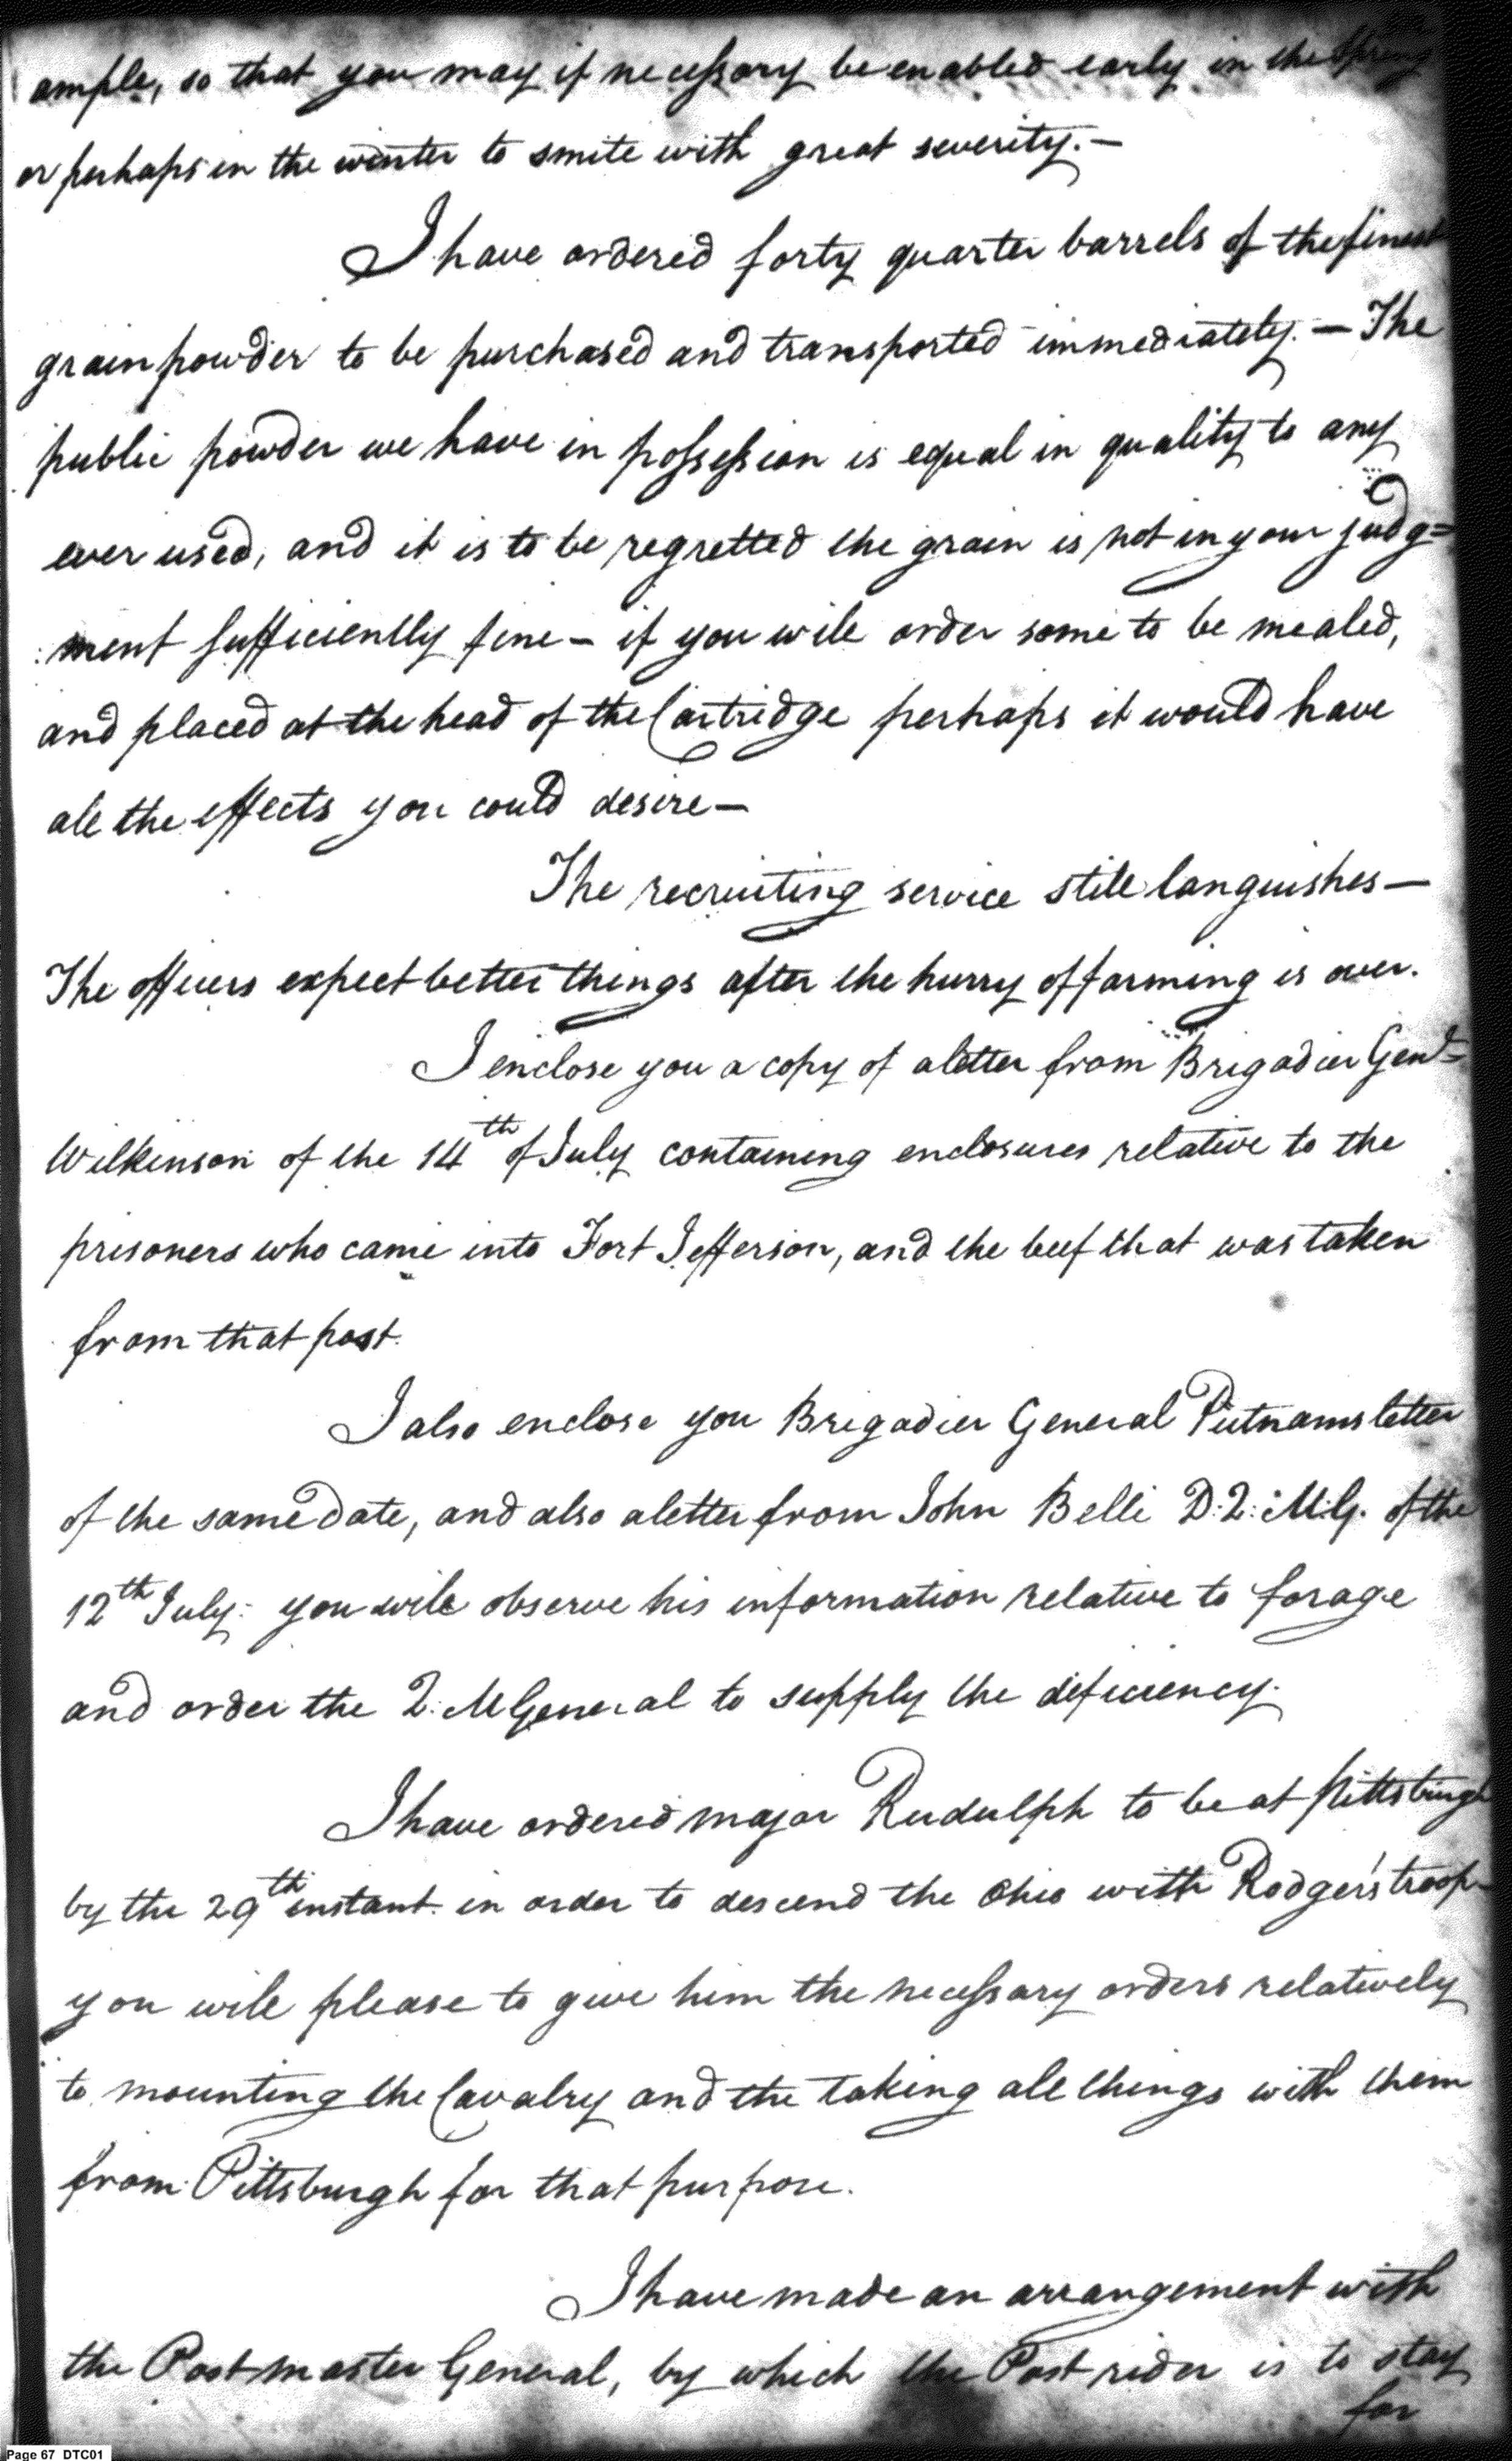 ample, so that you may if necessary be enabled early in the Spring
or perhaps in the winter to smite with great severity.—
I have ordered forty quarter barrels of the finest
grain powder to be purchased and transported immediately.— The
public powder we have in possession is equal in quality to any
ever used, and it is to be regretted the grain is not in your judg=
:ment sufficiently fine — if you will order some to be mealed,
and placed at the head of the Cartridge perhaps it would have
all the effects you could desire—
The recruiting service still languishes—
The officers expect better things after the hurry of farming is over.
I enclose you a copy of a letter from Brigadier Genl
Wilkinson of the 14th of July containing enclosures relative to the
prisoners who came into Fort Jefferson, and the beef that was taken
from that post.
I also enclose you Brigadier General Putnams letter
of the same date, and also a letter from John Belli D: Q: M.G. of the
12th July: you will observe his information relative to forage
and order the Q: M General to supply the deficiency.
I have ordered major Rudulph to be at pittsburgh
by the 29th instant in order to descend the Ohio with Rodger's troop—
you will please to give him the necessary orders relatively
to mounting the Cavalry and the taking all things with them
from Pittsburgh for that purpose.
I have made an arrangement with
the Post master General, by which the Post rider is to stay
for
Page 67 DTC01